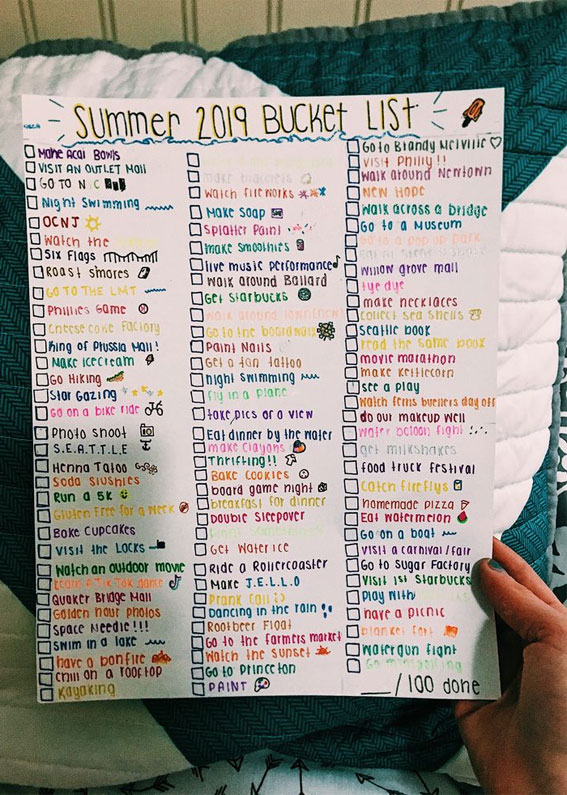 Summer 2019 Bucket List
Make Acai Bowls
Visit an Outlet Mall
Go to N C
Night Swimming
OCNJ
Watch the
Six Flags
Roast smores
Go to the LMT
Phillies Game
Cheesecake Factory
King of Prussia Mall!
Make icecream
Go Hiking
Star Gazing
Go on a bike ride
Photo shoot
S.E.A.T.T.L.E
Henna Tatoo
Soda Slushies
Run a 5K
Gluten Free for a week
Bake Cupcakes
Visit the Locks
Watch an outdoor movie
Learn a Tik Tok dance
Quaker Bridge Mall
Golden hour photos
Space Needle!!!
Swim in a lake
have a bonfire
Chill on a rooftop
Kayaking
make bracelets
Watch fireworks
Make Soap
Splatter Paint
make smoothies
live music performance
Walk around Ballard
Get Starbucks
Walk around
Go to the boardwalk
Paint Nails
Get a tan tattoo
night swimming
fly in a plane
take pics of a view
Eat dinner by the water
make crayons
Thrifting!!
Bake cookies
board game night
breakfast for dinner
Double Sleepover
Get Water ice
Ride a Rollercoaster
Make J.E.L.L.O
Prank Call :)
Dancing in the rain
Rootbeer Float
Go to the farmers market
Watch the sunset
Go to Princeton
PAINT
Go to Brandy Melville
Visit Philly!!
Walk around Newtown
New Hope
Walk across a bridge
Go to a Museum
Go to a pop up park
Willow grove mall
tye dye
make necklaces
Collect sea shells
Seattle book
read the same book
movie marathon
make kettlecorn
see a play
Watch ferris buellers day off
do our makeup well
Water baloon fight
get milkshakes
food truck festival
Catch fireflys
homemade pizza
Eat watermelon
Go on a boat
Visit a carnival/fair
Go to Sugar Factory
Visit 1st Starbucks
Play with
have a picnic
blanket fort
Watergun fight
Go minigolfing
/100 done